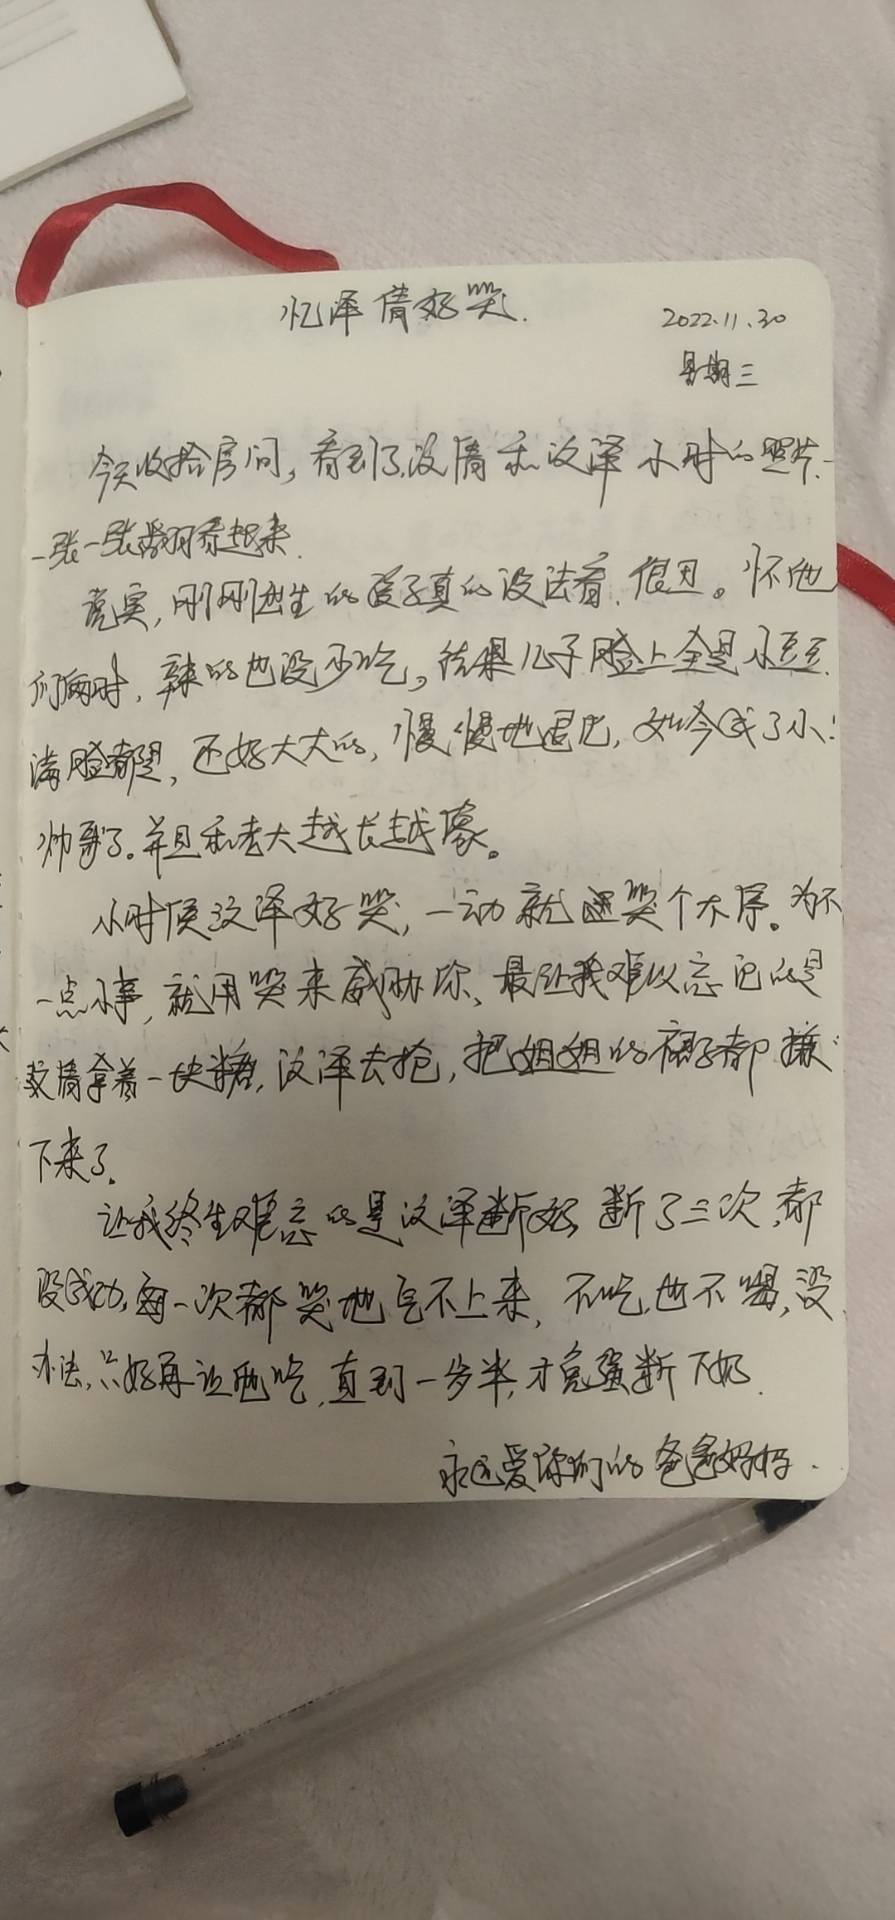 忆泽倩好哭.
2022.11.30
星期三
今天收拾房间,看到了汶倩和汶泽小时的照片.
一张一张翻看起来.
其实,刚刚出生的孩子真的没法看.很丑。怀他
们俩时,辣的也没少吃,结果儿子脸上全是小豆豆.
满脸都是,还好大大的,慢慢地退化,如今成了小
帅哥了.并且和老大越长越像。
小时侯汶泽好哭,一动就哭个不停。为不
一点小事,就用哭来威胁你、最让我难以忘记的是
汶倩拿着一块糖,汶泽去抢,把姐姐的裤子都
下来了.
让我终生难忘的是汶泽断奶,断了三次,都
没成功,每一次都哭地气不上来,不吃也不喝,没
办法,只好再让他吃,直到一岁半,才勉强断下奶.
永远爱你们的爸爸妈妈.